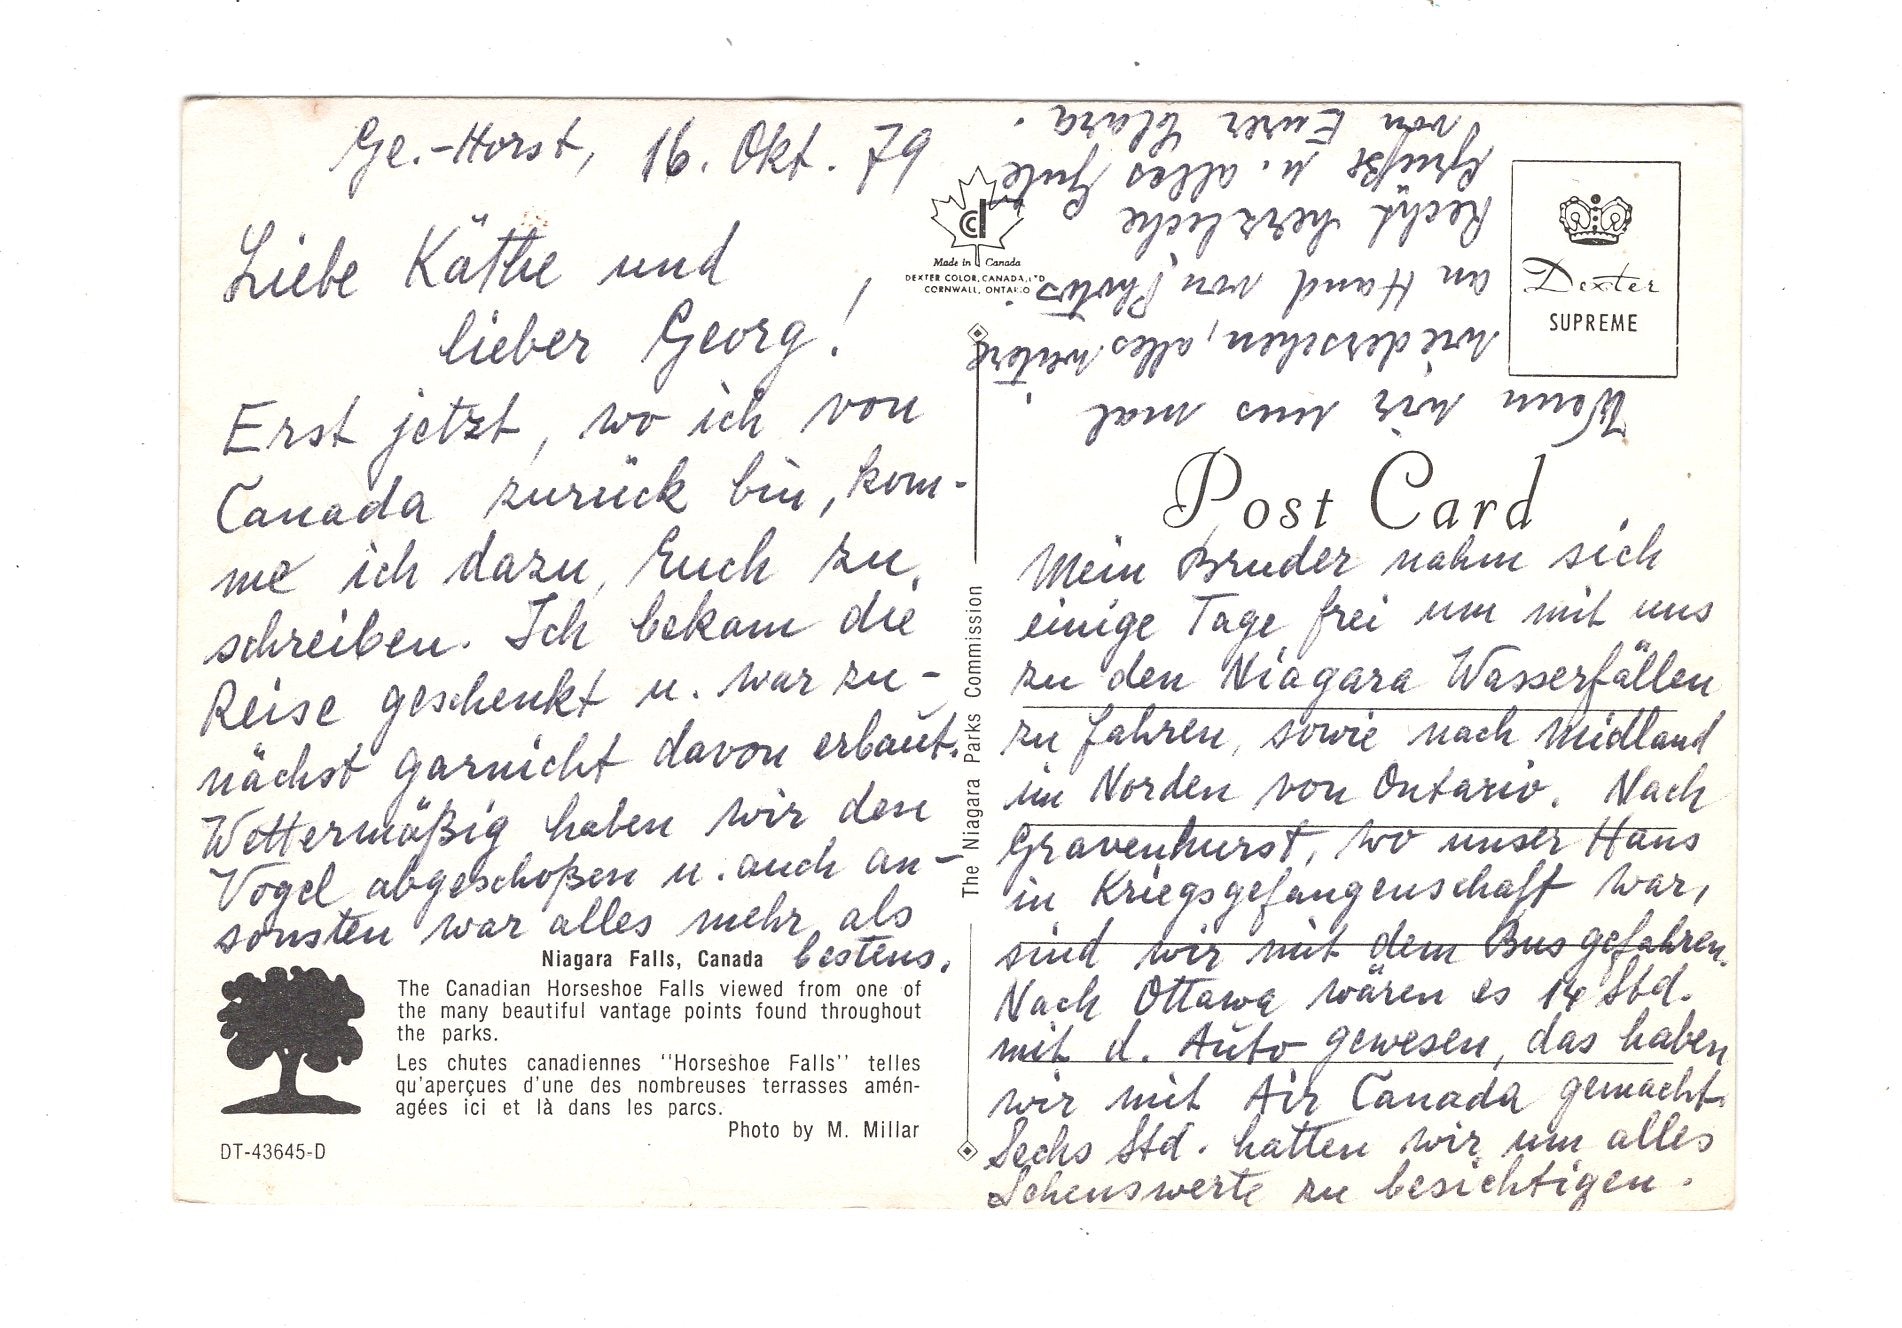 Ge.-Horst, 16. Okt. 79
Liebe Käthe und
lieber Georg!
Erst jetzt, wo ich von
Canada zurück bin, kom-
me ich dazu, Euch zu
schreiben. Ich bekam die
Reise geschenkt u. war zu-
nächst garnicht davon erbaut.
Wettermäßig haben wir den
Vogel abgeschoßen u. auch an-
sonsten war alles mehr als
bestens.
Niagara Falls, Canada
The Canadian Horseshoe Falls viewed from one of
the many beautiful vantage points found throughout
the parks.
Les chutes canadiennes "Horseshoe Falls" telles
qu'aperçues d'une des nombreuses terrasses amén-
agées ici et là dans les parcs.
Photo by M. Millar
DT-43645-D
The Niagara Parks Commission
Made in Canada
DEXTER COLOR, CANADA, LTD
CORNWALL, ONTARIO
Dexter
SUPREME
Post Card
Mein Bruder nahm sich
einige Tage frei um mit uns
zu den Niagara Wasserfällen
zu fahren, sowie nach Midland
im Norden von Ontario. Nach
Gravenhurst, wo unser Hans
in Kriegsgefangenschaft war,
sind wir mit dem Bus gefahren.
Nach Ottawa wären es 14 Std.
mit d. Auto gewesen, das haben
wir mit Air Canada gemacht.
Sechs Std. hatten wir um alles
Sehenswerte zu besichtigen.
Wenn wir uns mal
wiedersehen, alles weitere
an Hand von Photos.
Recht herzliche
Grüße u. alles Gute
von Eurer Klara.